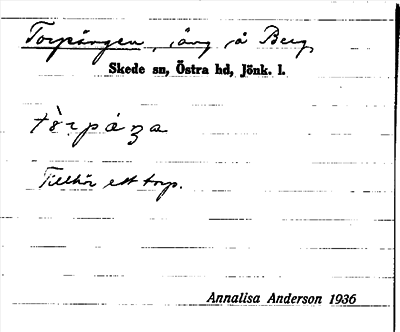 Torpängen, äng på Berg
Skede sn, Östra hd, Jönk. l.
Tillhör ett torp.
Annalisa Anderson 1936